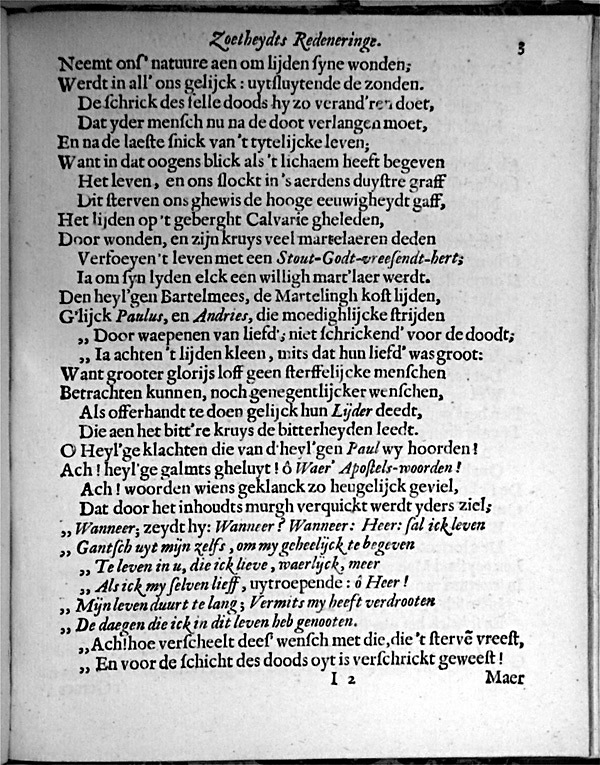 Zoetheydts Redeneringe. 3
Neemt onſ' natuure aen om lijden ſyne wonden;
Werdt in all' ons gelijck : uytſluytende de zonden.
De ſchrick des felle doods hy zo verand'ren doet,
Dat yder menſch nu na de doot verlangen moet,
En na de laeſte ſnick van 't tytelijcke leven;
Want in dat oogens blick als 't lichaem heeft begeven
Het leven, en ons ſlockt in 's aerdens duyſtre graff
Dit ſterven ons ghewis de hooge eeuwigheydt gaff,
Het lijden op 't geberght Calvarie gheleden,
Door wonden, en zijn kruys veel martelaeren deden
Verfoeyen 't leven met een Stout-Godt-vreeſendt-hert;
Ia om ſyn lyden elck een willigh mart'laer werdt.
Den heyl'gen Bartelmees, de Martelingh koſt lijden,
G'lijck Paulus, en Andries, die moedighlijcke ſtrijden
„ Door waepenen van liefd'; niet ſchrickend' voor de doodt;
„ Ia achten 't lijden kleen, mits dat hun liefd' was groot:
Want grooter glorijs loff geen ſterffelijcke menſchen
Betrachten kunnen, noch genegentlijcker wenſchen,
Als offerhandt te doen gelijck hun Lijder deedt,
Die aen het bitt're kruys de bitterheyden leedt.
O Heyl'ge klachten die van d'heyl'gen Paul wy hoorden !
Ach ! heyl'ge galmts gheluyt ! ô Waer' Apoſtels-woorden !
Ach ! woorden wiens geklanck zo heugelijck geviel,
Dat door het inhoudts murgh verquickt werdt yders ziel;
„ Wanneer; zeydt hy: Wanneer ? Wanneer : Heer : ſal ick leven
„ Gantſch uyt mijn zelfs, om my geheelijck te begeven
„ Te leven in u, die ick lieve, waerlijck, meer
„ Als ick my ſelven lieff, uytroepende : ô Heer !
„ Mijn leven duurt te lang; Vermits my heeft verdrooten
„ De daegen die ick in dit leven heb genooten.
„ Ach! hoe verſcheelt deeſ' wenſch met die, die 't ſtervē vreeſt,
„ En voor de ſchicht des doods oyt is verſchrickt geweeſt !
I 2 Maer